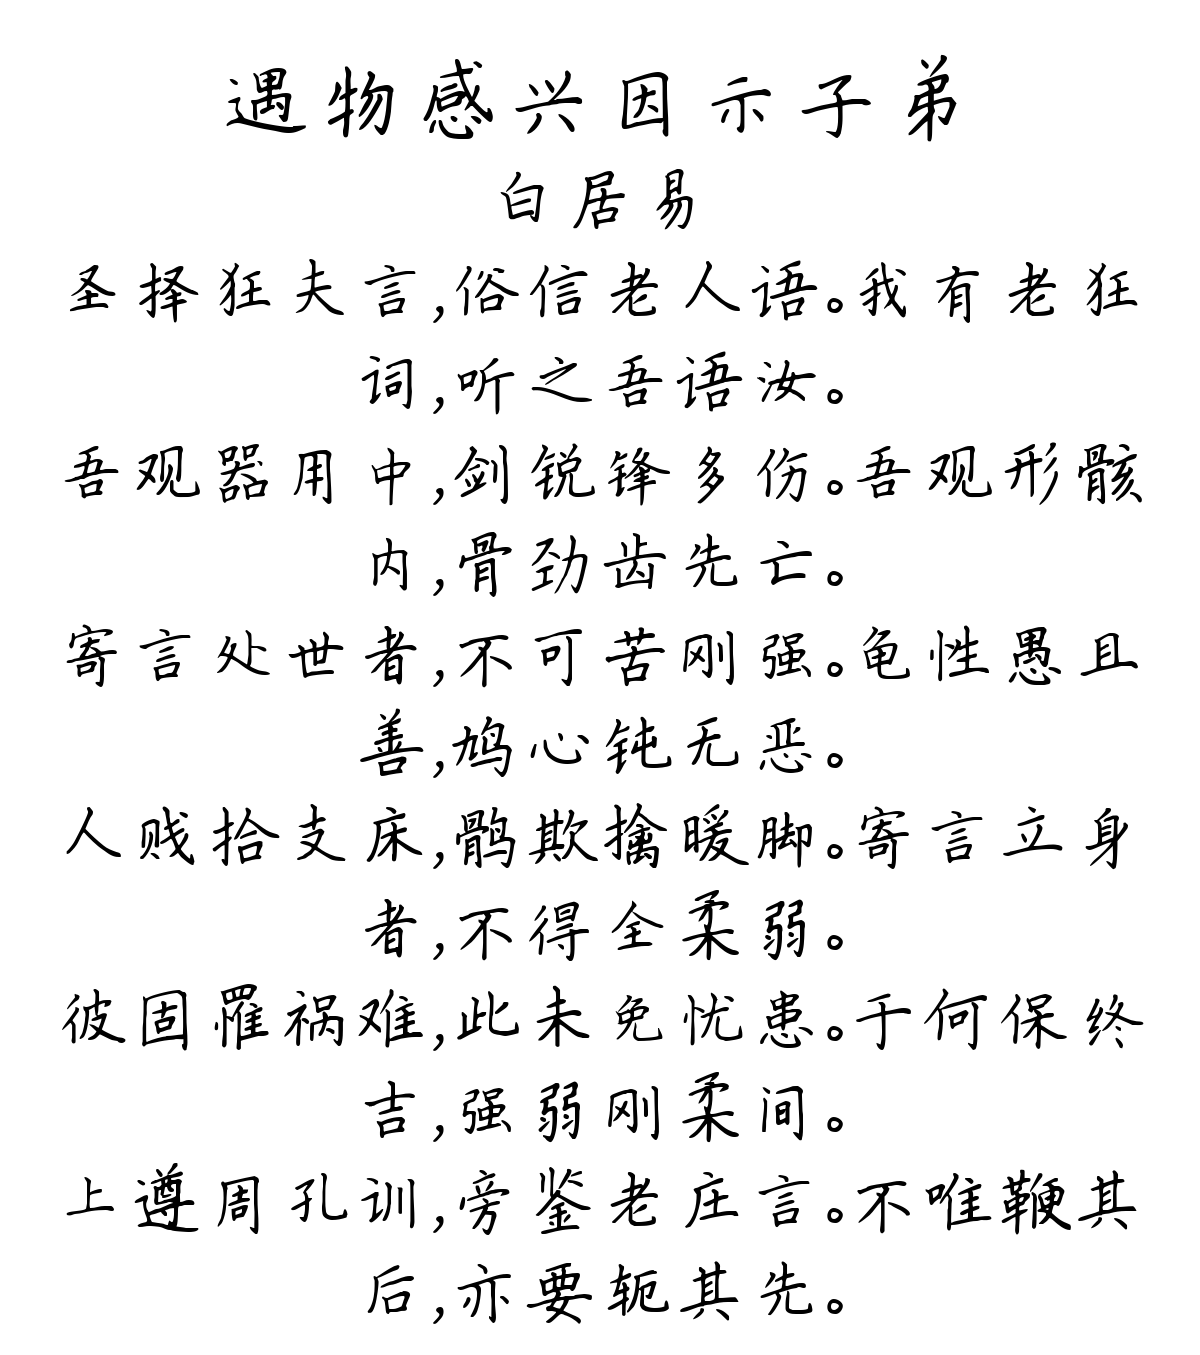 遇物感兴因示子弟
白居易
圣择狂夫言,俗信老人语。我有老狂
词,听之吾语汝。
吾观器用中,剑锐锋多伤。吾观形骸
内,骨劲齿先亡。
寄言处世者,不可苦刚强。龟性愚且
善,鸠心钝无恶。
人贱拾支床,鹘欺擒暖脚。寄言立身
者,不得全柔弱。
彼固罹祸难,此未免忧患。于何保终
吉,强弱刚柔间。
上遵周孔训,旁鉴老庄言。不唯鞭其
后,亦要轭其先。